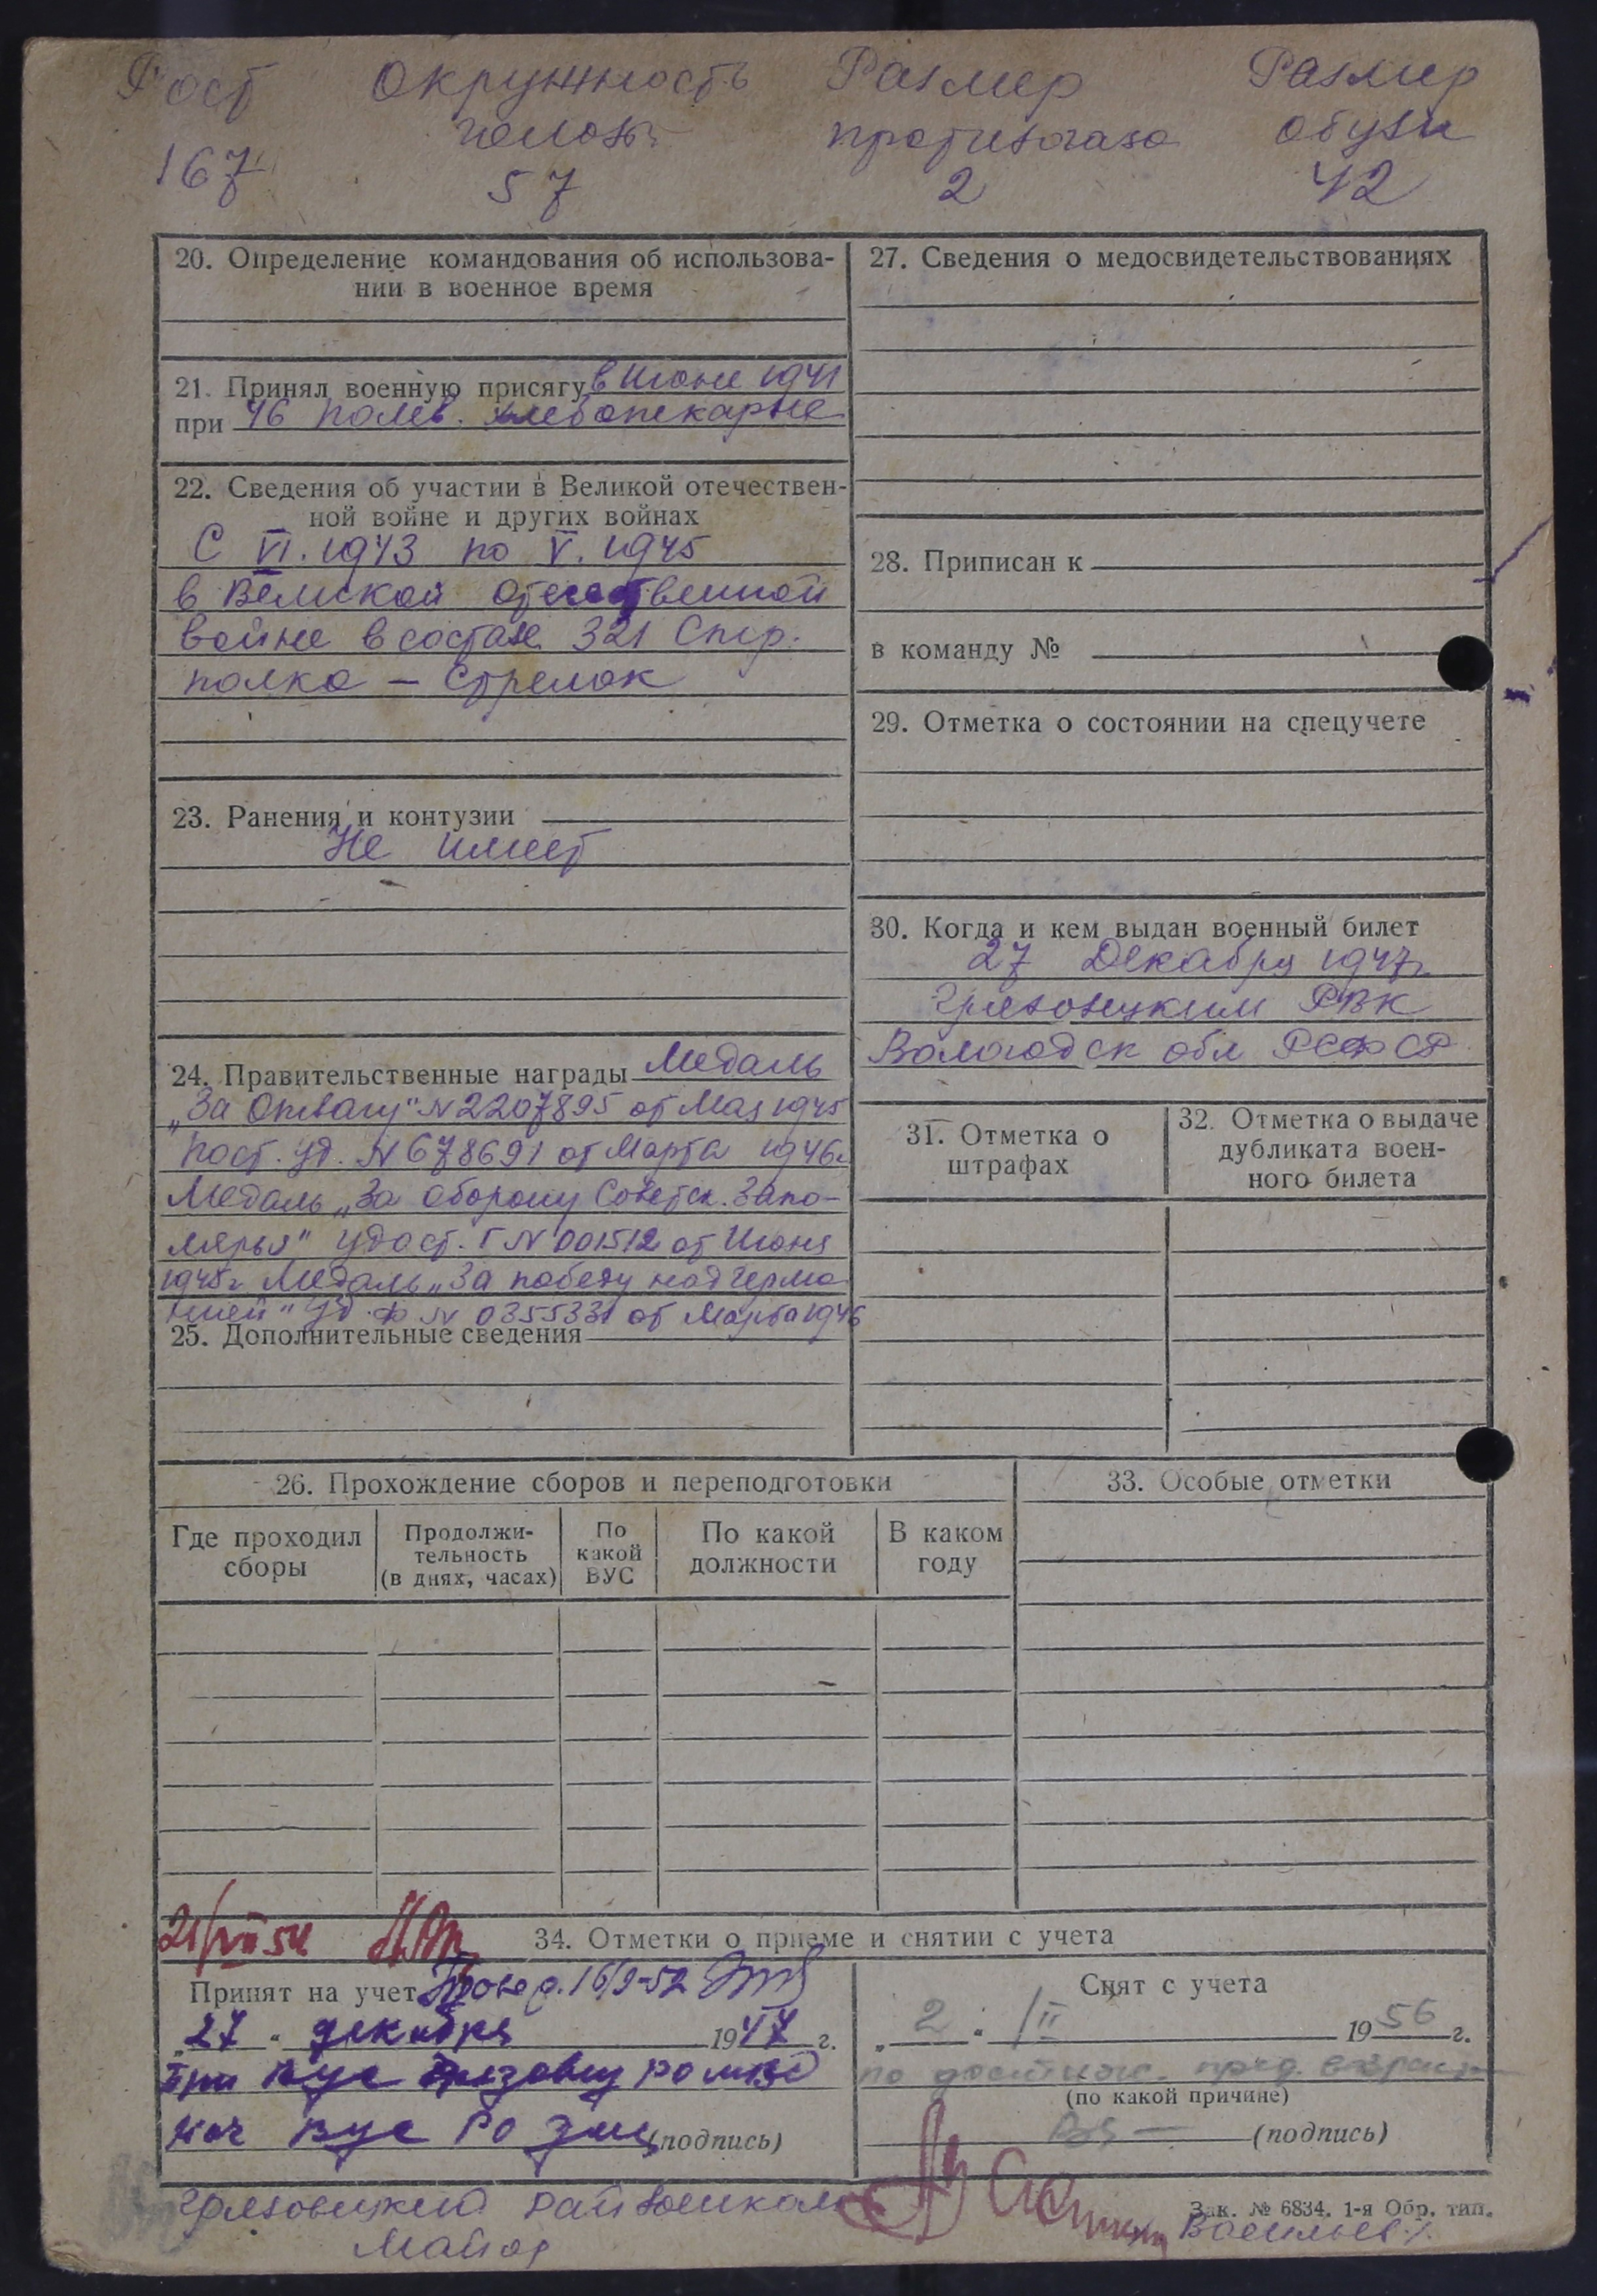 Рост Окружность Размер Размер
головы противогаза обуви
167 57 2 42
20. Определение командования об использова-
нии в военное время
21. Принял военную присягу в Июне 1941
при 46 полев. хлебопекарне
22. Сведения об участии в Великой отечествен-
ной войне и других войнах
С VI. 1943 по V. 1945
в Великой отечественной
войне в составе 321 Стр.
полка — Стрелок
23. Ранения и контузии
Не имеет
24. Правительственные награды Медаль
„За Отвагу" N 2207895 от Мая 1945
пост. уд. N 678691 от Марта 1946г
Медаль „За оборону Советск. Запо-
лярья" удост. Г N 001512 от Июня
1945г Медаль „За победу над Герма
нией" уд. Ф N 0355331 от Марта 1946
25. Дополнительные сведения
27. Сведения о медосвидетельствованиях
28. Приписан к
в команду №
29. Отметка о состоянии на спецучете
30. Когда и кем выдан военный билет
27 Декабря 1947г.
Грязовецким РВК
Вологодск обл РСФСР
31. Отметка о
штрафах
32. Отметка о выдаче
дубликата воен-
ного билета
26. Прохождение сборов и переподготовки
Где проходил
сборы
Продолжи-
тельность
(в днях, часах)
По
какой
ВУС
По какой
должности
В каком
году
33. Особые отметки
21/VII 54
34. Отметки о приеме и снятии с учета
Принят на учет Провер. 16/9-52
„27" декабря 1947 г.
Нач ВУС РО
(подпись)
Снят с учета
„2" /II 1956 г.
по достиж. пред. возраста
(по какой причине)
(подпись)
Грязовецкий райвоенком
Майор
Васильев
Зак. № 6834. 1-я Обр. тип.